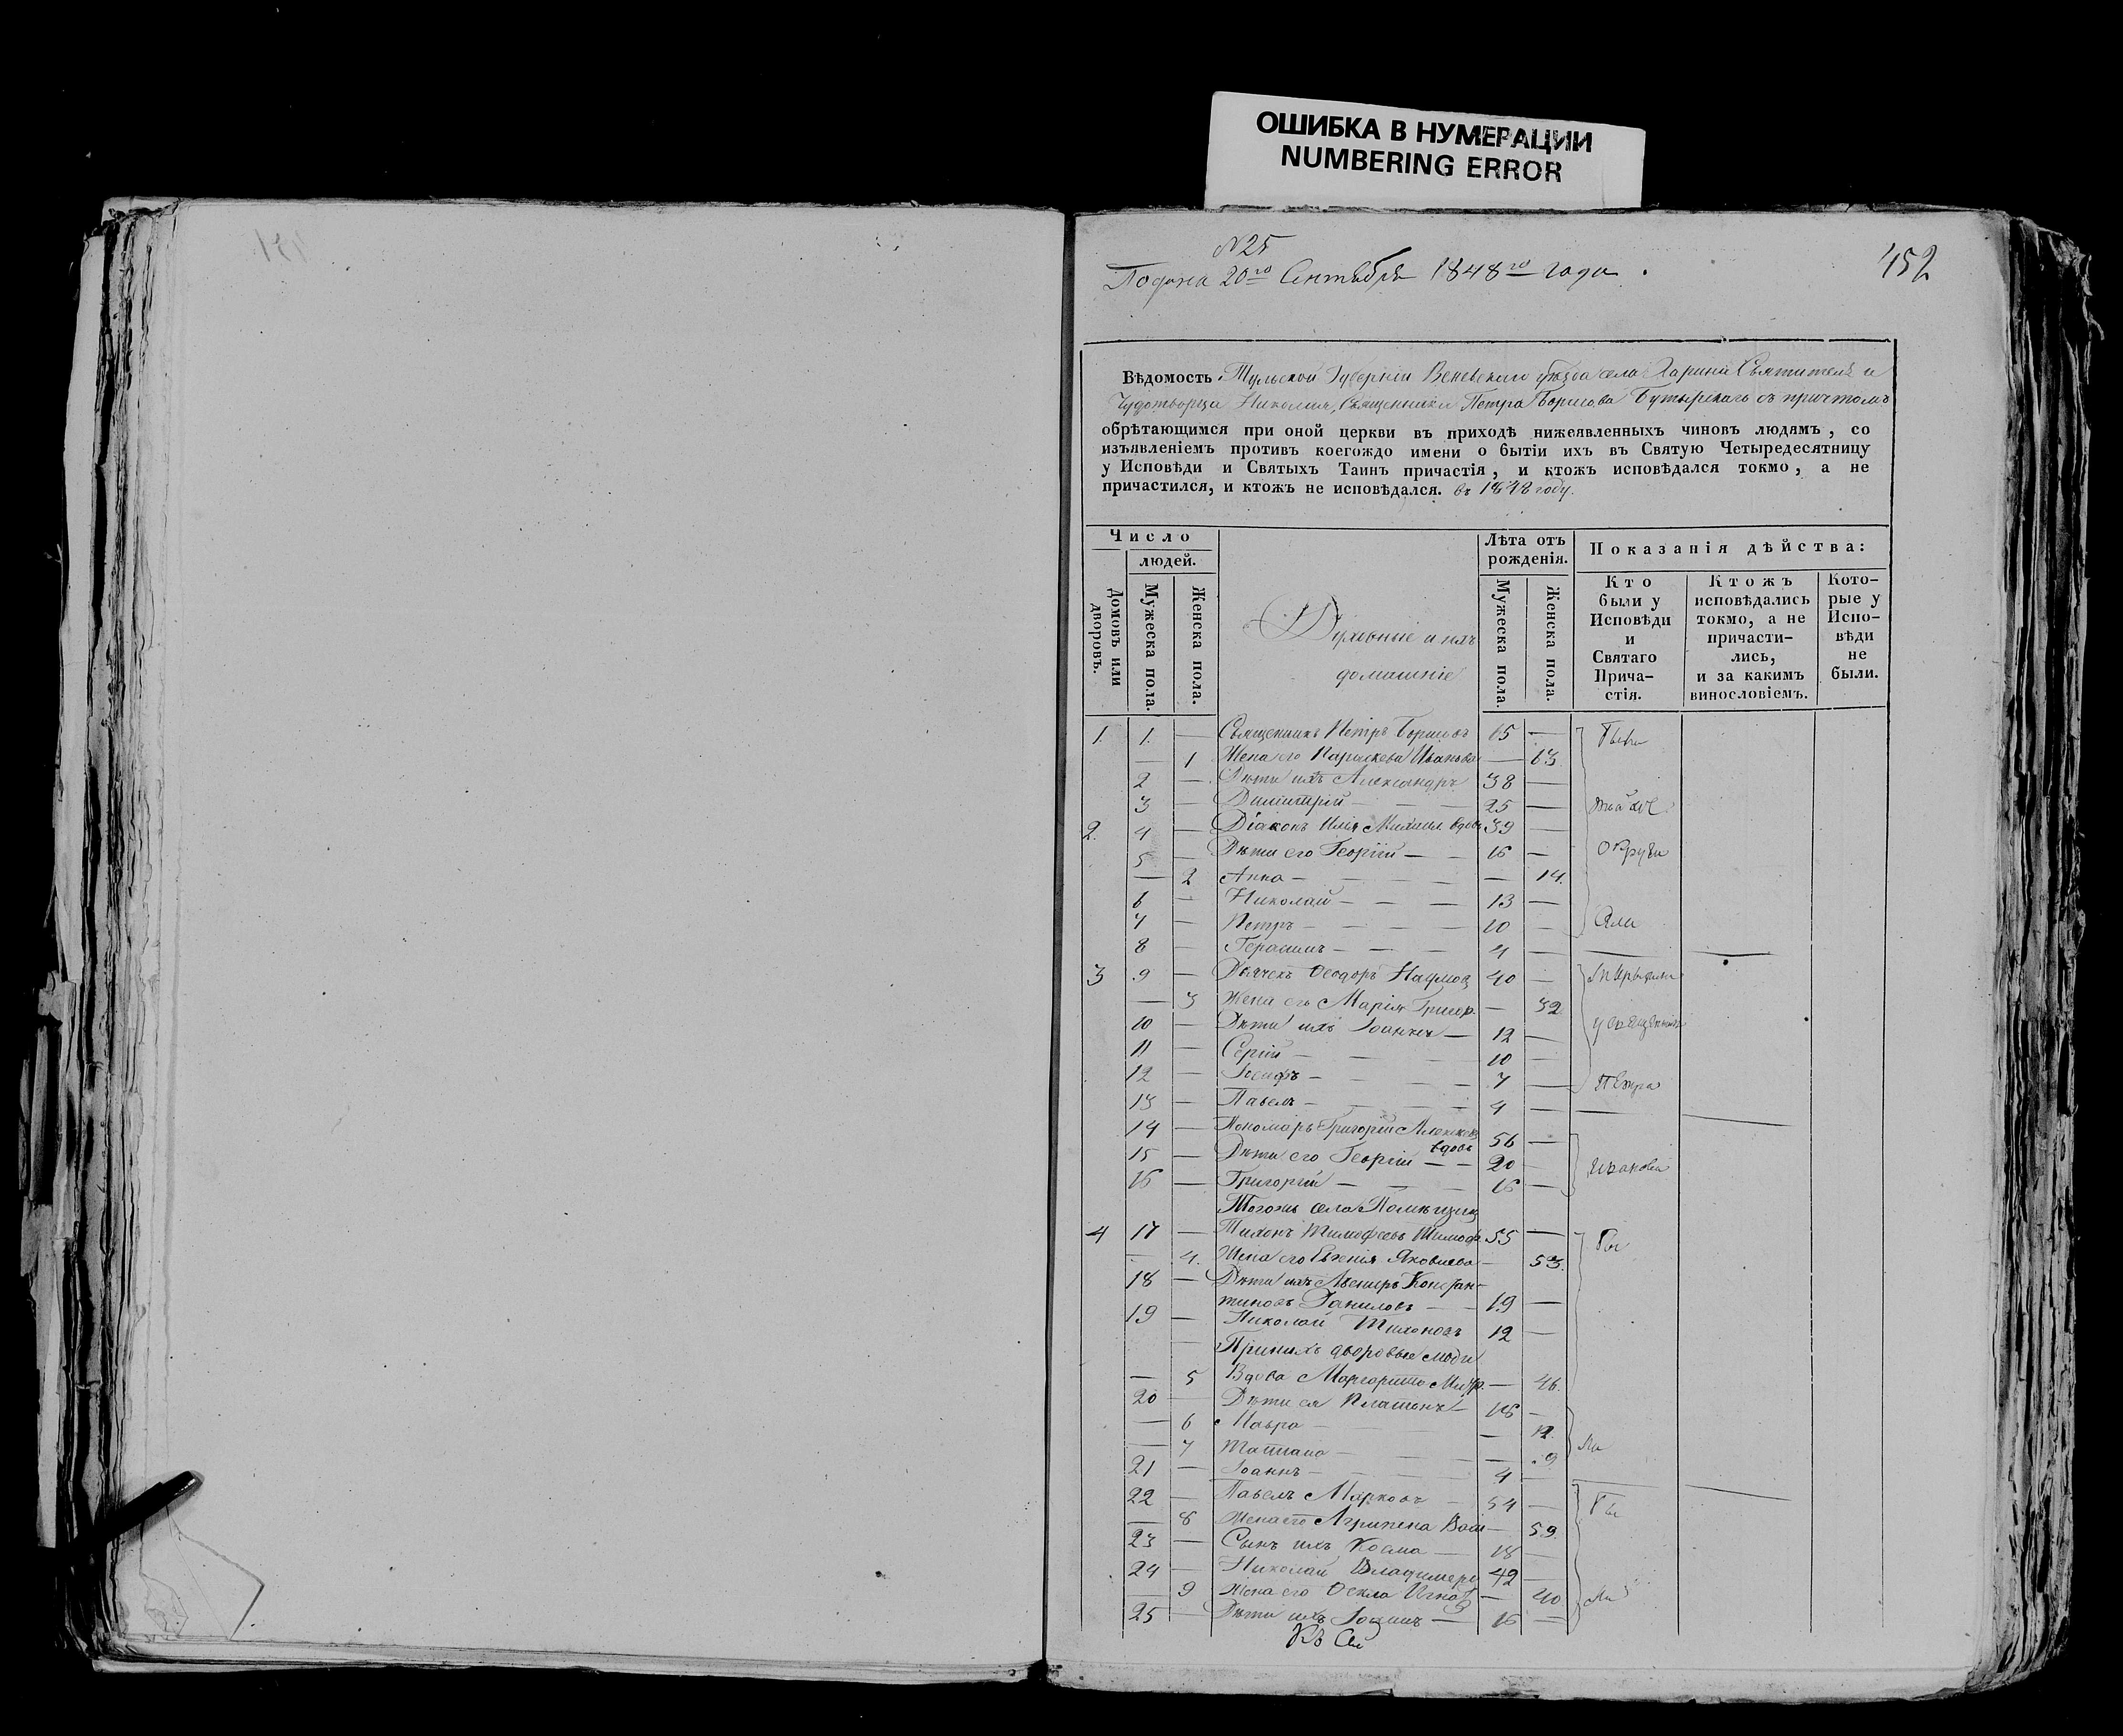 ОШИБКА В НУМЕРАЦИИ
NUMBERING ERROR
N 25
Подана 20го Сентября 1848го года.
452
Вѣдомость Тульской Губерніи Веневскаго уѣзда села Харина Святителя и
Чудотворца Николая, Священника Петра Борисова Бутырскаго съ причтомъ
обрѣтающимся при оной церкви въ приходѣ нижеявленныхъ чиновъ людямъ, со
изъявленіемъ противъ коегождо имени о бытіи ихъ въ Святую Четыредесятницу
у Исповѣди и Святыхъ Таинъ причастія, и ктожъ исповѣдался токмо, а не
причастился, и ктожъ не исповѣдался. въ 1848 году.
Число
людей.
Домовъ или дворовъ.
Мужеска пола.
Женска пола.
Духовные и ихъ
домашніе
Лѣта отъ
рожденія.
Мужеска пола.
Женска пола.
Показанія дѣйства:
Кто
были у
Исповѣди
и
Святаго
Прича-
стія.
Ктожъ
исповѣдались
токмо, а не
причасти-
лись,
и за какимъ
винословіемъ.
Кото-
рые у
Испо-
вѣди
не
были.
1. 1. — Священникъ Петръ Борисовъ 65 —
— 1 Жена его Параскева Иванова — 63
2 — Дѣти ихъ Александръ 38 —
3 — Димитрій — 25 —
2. 4 — Діаконъ Илія Михаил вдовъ 39 —
5 — Дѣти его Георгій — 16 — округи
— 2 Анна — — 14.
6 — Николай — 13 —
7 — Петръ — 10 —
8 — Герасимъ — 4 —
3 9 — Дьячекъ Ѳеодоръ Наумов 40 —
— 3 Жена его Марія Григор. — 32
10 — Дѣти ихъ Іоаннъ — 12 — у священника
11 — Сергій — 10 —
12 — Іосифъ — 7 — Петра
13 — Павелъ — 4 —
14 — Пономарь Григорій Алексѣев вдовъ 56 —
15 — Дѣти его Георгій — 20 — Иванова
16 — Григорій — 16 —
Тогожъ села Помѣщик
4 17 — Тихонъ Тимофеевъ 55 — Бы
— 4. Жена его Евгенія Яковлева — 53.
18 — Дѣти ихъ Констан-
тиновъ Даниловъ — 19 —
19 — Николай Тихоновъ 12 —
При нихъ дворовые люди
— 5 Вдова Маргарита — 46.
20 — Дѣти ея Платонъ —
— 6 Мавра — — 12.
— 7 Татіана — — 9 ли
21 — Іоаннъ — 4 —
22 — Павелъ Марковъ 54 — Бы
— 8 Жена его Агрипена Васи — 59.
23 — Сынъ ихъ Косма — 18 —
24 — Николай Владимеро 42 —
— 9 Жена его Ѳекла Игнат — 40 ли
25 — Дѣти ихъ — 16 —